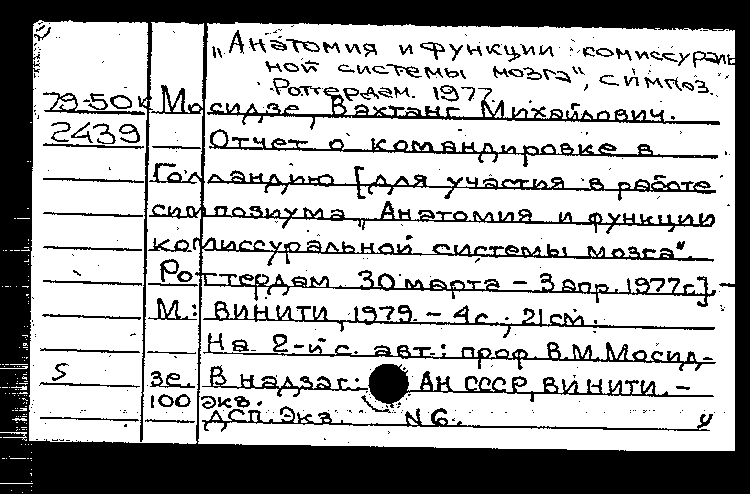 „Анатомия и функции комиссураль
ной системы мозга", симпоз.
Роттердам. 1977
79-50к Мосидзе, Вахтанг Михайлович.
2439 Отчет о командировке в
Голландию [для участия в работе
симпозиума „Анатомия и функции
комиссуральной системы мозга".
Роттердам. 30 марта - 3 апр. 1977г.]. -
М.: ВИНИТИ, 1979. - 4с.; 21см.
На 2-й с. авт.: проф. В.М.Мосид-
S зе. В надзаг.: АН СССР, ВИНИТИ. -
100 экз.
ДСП. Экз. N 6. у